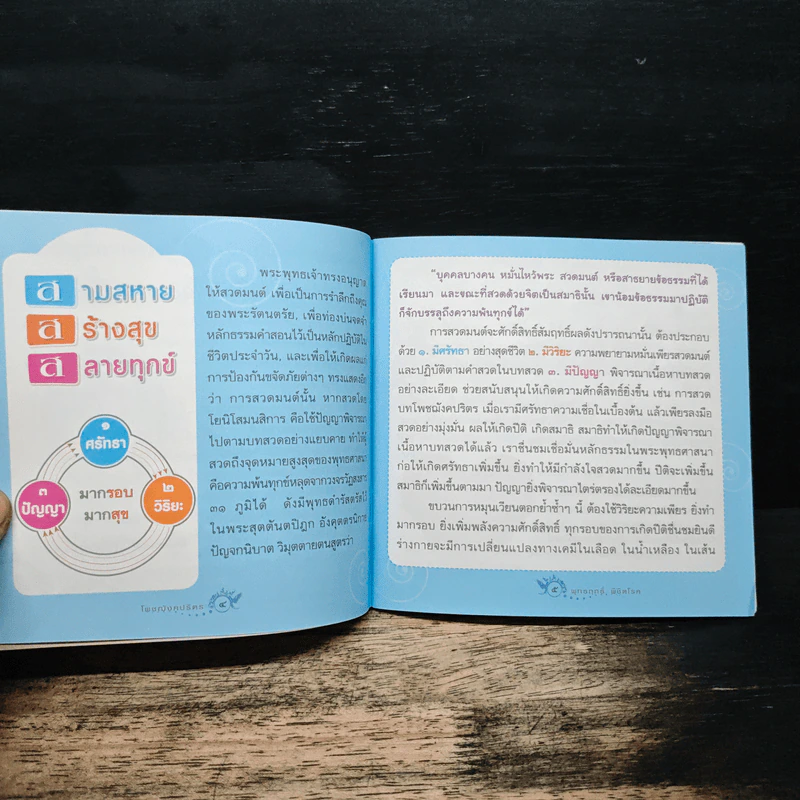 สามสหาย
สร้างสุข
สลายทุกข์
๑
ศรัทธา
๓
ปัญญา
มากรอบ
มากสุข
๒
วิริยะ
พระพุทธเจ้าทรงอนุญาต
ให้สวดมนต์ เพื่อเป็นการรำลึกถึงคุณ
ของพระรัตนตรัย, เพื่อท่องบ่นจดจำ
หลักธรรมคำสอนไว้เป็นหลักปฏิบัติใน
ชีวิตประจำวัน, และเพื่อให้เกิดผลแก่
การป้องกันขจัดภัยต่างๆ ทรงแสดงไว้
ว่า การสวดมนต์นั้น หากสวดโดย
โยนิโสมนสิการ คือใช้ปัญญาพิจารณา
ไปตามบทสวดอย่างแยบคาย ทำให้ผู้
สวดถึงจุดหมายสูงสุดของพุทธศาสนา
คือความพ้นทุกข์หลุดจากวงจรวัฏสงสาร
๓๑ ภูมิได้ ดังมีพุทธดำรัสตรัสไว้
ในพระสุตตันตปิฎก อังคุตตรนิกาย
ปัญจกนิบาต วิมุตตายตนสูตรว่า
โพชฌังคปริตร ๔
"บุคคลบางคน หมั่นไหว้พระ สวดมนต์ หรือสาธยายข้อธรรมที่ได้
เรียนมา และขณะที่สวดด้วยจิตเป็นสมาธินั้น เขาน้อมข้อธรรมมาปฏิบัติ
ก็จักบรรลุถึงความพ้นทุกข์ได้"
การสวดมนต์จะศักดิ์สิทธิ์สัมฤทธิ์ผลดังปรารถนานั้น ต้องประกอบ
ด้วย ๑. มีศรัทธา อย่างสุดชีวิต ๒. มีวิริยะ ความพยายามหมั่นเพียรสวดมนต์
และปฏิบัติตามคำสวดในบทสวด ๓. มีปัญญา พิจารณาเนื้อหาบทสวด
อย่างละเอียด ช่วยสนับสนุนให้เกิดความศักดิ์สิทธิ์ยิ่งขึ้น เช่น การสวด
บทโพชฌังคปริตร เมื่อเรามีศรัทธาความเชื่อในเบื้องต้น แล้วเพียรลงมือ
สวดอย่างมุ่งมั่น ผลให้เกิดปีติ เกิดสมาธิ สมาธิทำให้เกิดปัญญาพิจารณา
เนื้อหาบทสวดได้แล้ว เราชื่นชมเชื่อมั่นหลักธรรมในพระพุทธศาสนา
ก่อให้เกิดศรัทธาเพิ่มขึ้น ยิ่งทำให้มีกำลังใจสวดมากขึ้น ปีติจะเพิ่มขึ้น
สมาธิก็เพิ่มขึ้นตามมา ปัญญายิ่งพิจารณาไตร่ตรองได้ละเอียดมากขึ้น
ขบวนการหมุนเวียนตอกย้ำซ้ำๆ นี้ ต้องใช้วิริยะความเพียร ยิ่งทำ
มากรอบ ยิ่งเพิ่มพลังความศักดิ์สิทธิ์ ทุกรอบของการเกิดปีติชื่นชมยินดี
ร่างกายจะมีการเปลี่ยนแปลงทางเคมีในเลือด ในน้ำเหลือง ในเส้น
๕ พุทธฤทธิ์, พิชิตโรค